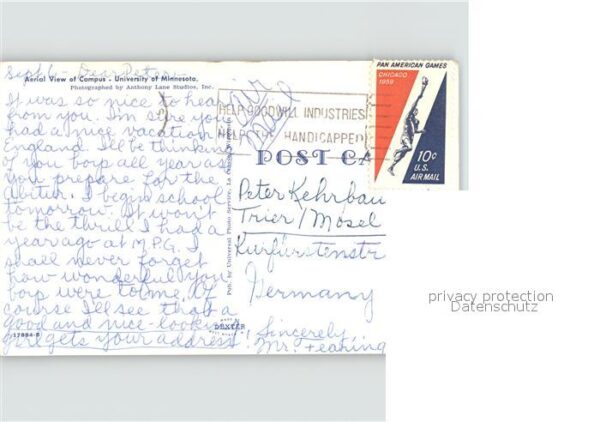 Sept 6- Dear Peter,
Aerial View of Campus - University of Minnesota.
Photographed by Anthony Lane Studios, Inc.
It was so nice to hear
from you. I'm sure you
had a nice vacation in
England. I'll be thinking
of you boys all year as
you prepare for the
Abitur. I begin school
tomorrow. It won't
be the thrill I had a
year ago at M.P.G. I
shall never forget
how wonderful you
boys were to me. Of
course I'll see that a
good and nice-looking
girl gets your address!
Sincerely,
Mr.
17884-B
Pub. by Universal Photo Service, La
DEXTER
air
mail
HELP GOODWILL INDUSTRIES
HELP THE HANDICAPPED
POST CA
PAN AMERICAN GAMES
CHICAGO
1959
10¢
U.S.
AIR MAIL
Peter Kehrbau
Trier/Mosel
Kurfürstenstr
Germany
privacy protection
Datenschutz